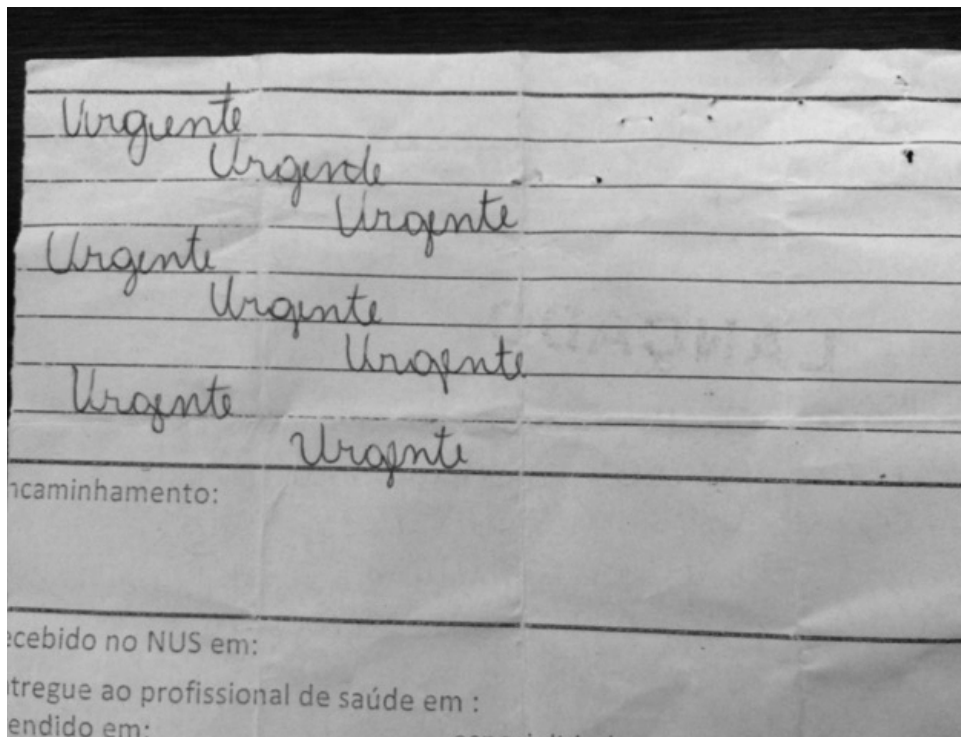 Urguente
Urgende
Urgente
Urgente
Urgente
Urgente
Urgente
Urgente
ncaminhamento:
ecebido no NUS em:
ntregue ao profissional de saúde em :
endido em: